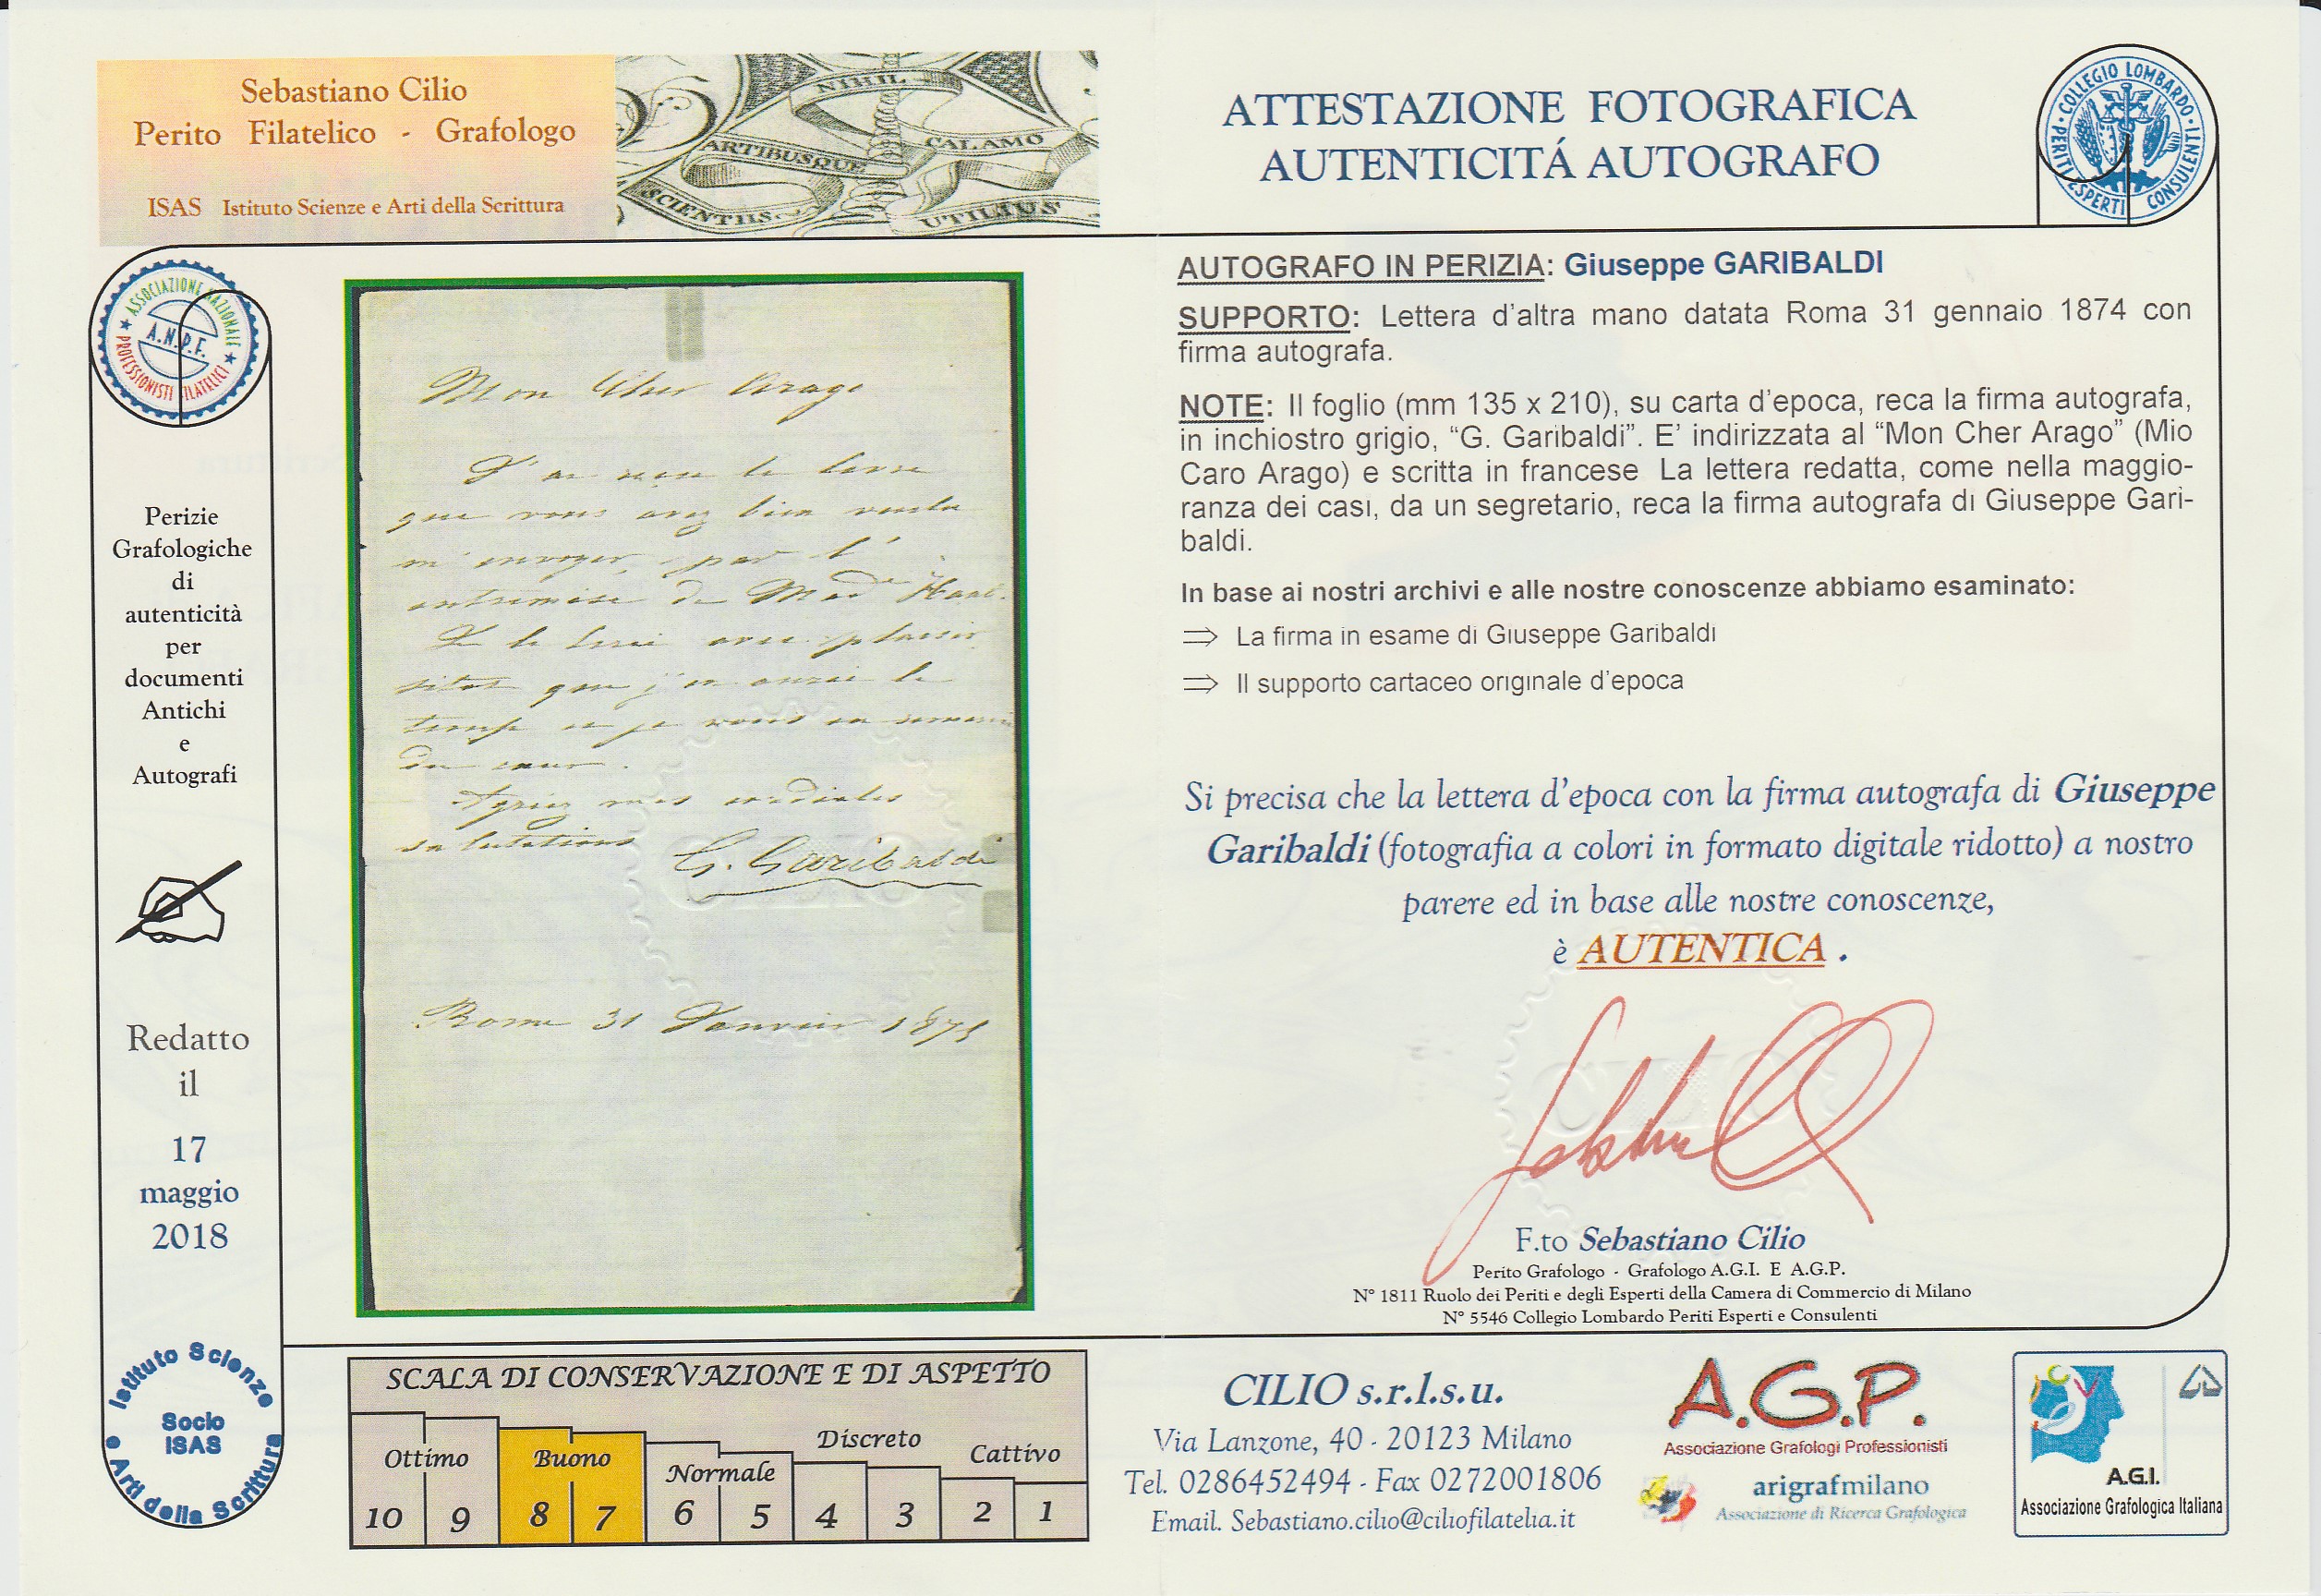 Sebastiano Cilio
Perito Filatelico - Grafologo
ISAS Istituto Scienze e Arti della Scrittura
NIHIL
ARTIBUSQUE
CALAMO
SCIENTIIS
UTILIUS
ATTESTAZIONE FOTOGRAFICA
AUTENTICITÁ AUTOGRAFO
COLLEGIO LOMBARDO
PERITI ESPERTI CONSULENTI
ASSOCIAZIONE NAZIONALE
A.N.P.F.
PROFESSIONISTI FILATELICI
Perizie
Grafologiche
di
autenticità
per
documenti
Antichi
e
Autografi
Redatto
il
17
maggio
2018
Istituto Scienze
Socio
ISAS
e Arti della Scrittura
Mon Cher Arago
J'ai le livre
que vous avez bien voulu
m'envoyer, par l'
entremise de Mad
Je le lirai avec plaisir
sitot que j'en aurai le
temps et je vous en
du coeur.
Agriez mes cordiales
salutations
G. Garibaldi
Rome 31 Janvier 187
AUTOGRAFO IN PERIZIA: Giuseppe GARIBALDI
SUPPORTO: Lettera d'altra mano datata Roma 31 gennaio 1874 con
firma autografa.
NOTE: Il foglio (mm 135 x 210), su carta d'epoca, reca la firma autografa,
in inchiostro grigio, “G. Garibaldi”. E' indirizzata al “Mon Cher Arago” (Mio
Caro Arago) e scritta in francese La lettera redatta, come nella maggio-
ranza dei casi, da un segretario, reca la firma autografa di Giuseppe Gari-
baldi.
In base ai nostri archivi e alle nostre conoscenze abbiamo esaminato:
⇒ La firma in esame di Giuseppe Garibaldi
⇒ Il supporto cartaceo originale d'epoca
Si precisa che la lettera d'epoca con la firma autografa di Giuseppe
Garibaldi (fotografia a colori in formato digitale ridotto) a nostro
parere ed in base alle nostre conoscenze,
è AUTENTICA .
CILIO
F.to Sebastiano Cilio
Perito Grafologo - Grafologo A.G.I. E A.G.P.
N° 1811 Ruolo dei Periti e degli Esperti della Camera di Commercio di Milano
N° 5546 Collegio Lombardo Periti Esperti e Consulenti
SCALA DI CONSERVAZIONE E DI ASPETTO
Ottimo Buono Normale Discreto Cattivo
10 9 8 7 6 5 4 3 2 1
CILIO s.r.l.s.u.
Via Lanzone, 40 - 20123 Milano
Tel. 0286452494 - Fax 0272001806
Email. Sebastiano.cilio@ciliofilatelia.it
A.G.P.
Associazione Grafologi Professionisti
arigrafmilano
Associazione di Ricerca Grafologica
A.G.I.
Associazione Grafologica Italiana